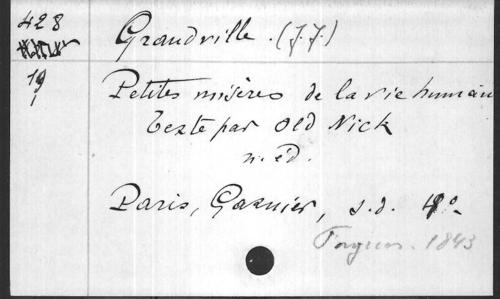 428
Grandville. (J. J.)
19
1
Petites misères de la vie humain
Texte par Old Nick
n. éd.
Paris, Garnier, s.d. 4º
1843